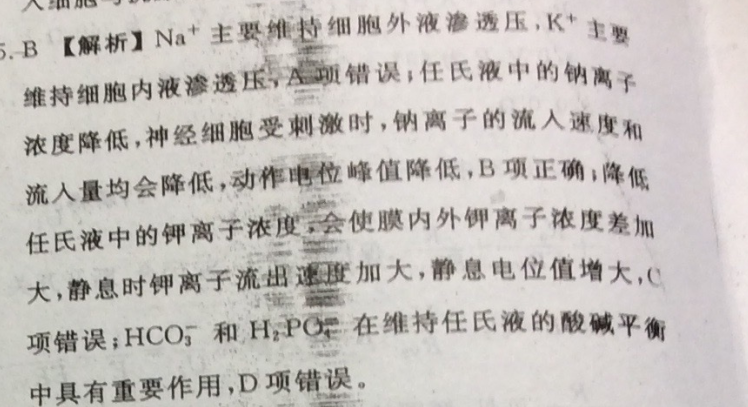 人细胞
5.B 【解析】Na⁺主要维持细胞外液渗透压,K⁺主要
维持细胞内液渗透压,A项错误;任氏液中的钠离子
浓度降低,神经细胞受刺激时,钠离子的流入速度和
流入量均会降低,动作电位峰值降低,B项正确;降低
任氏液中的钾离子浓度,会使膜内外钾离子浓度差加
大,静息时钾离子流出速度加大,静息电位值增大,C
项错误;HCO₃⁻和H₂PO₄⁻在维持任氏液的酸碱平衡
中具有重要作用,D项错误。